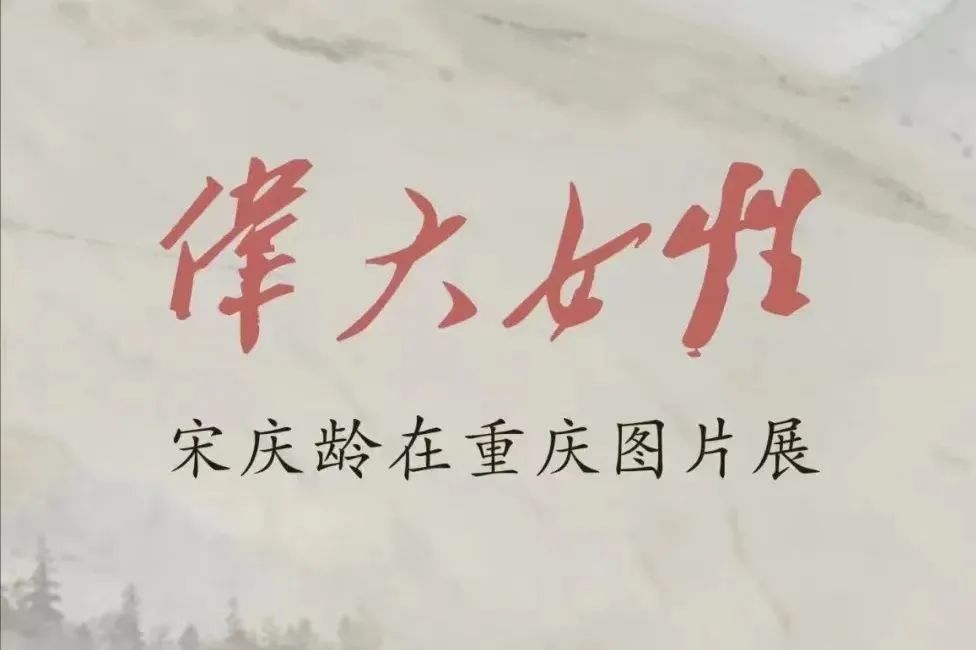 偉大女性
宋庆龄在重庆图片展